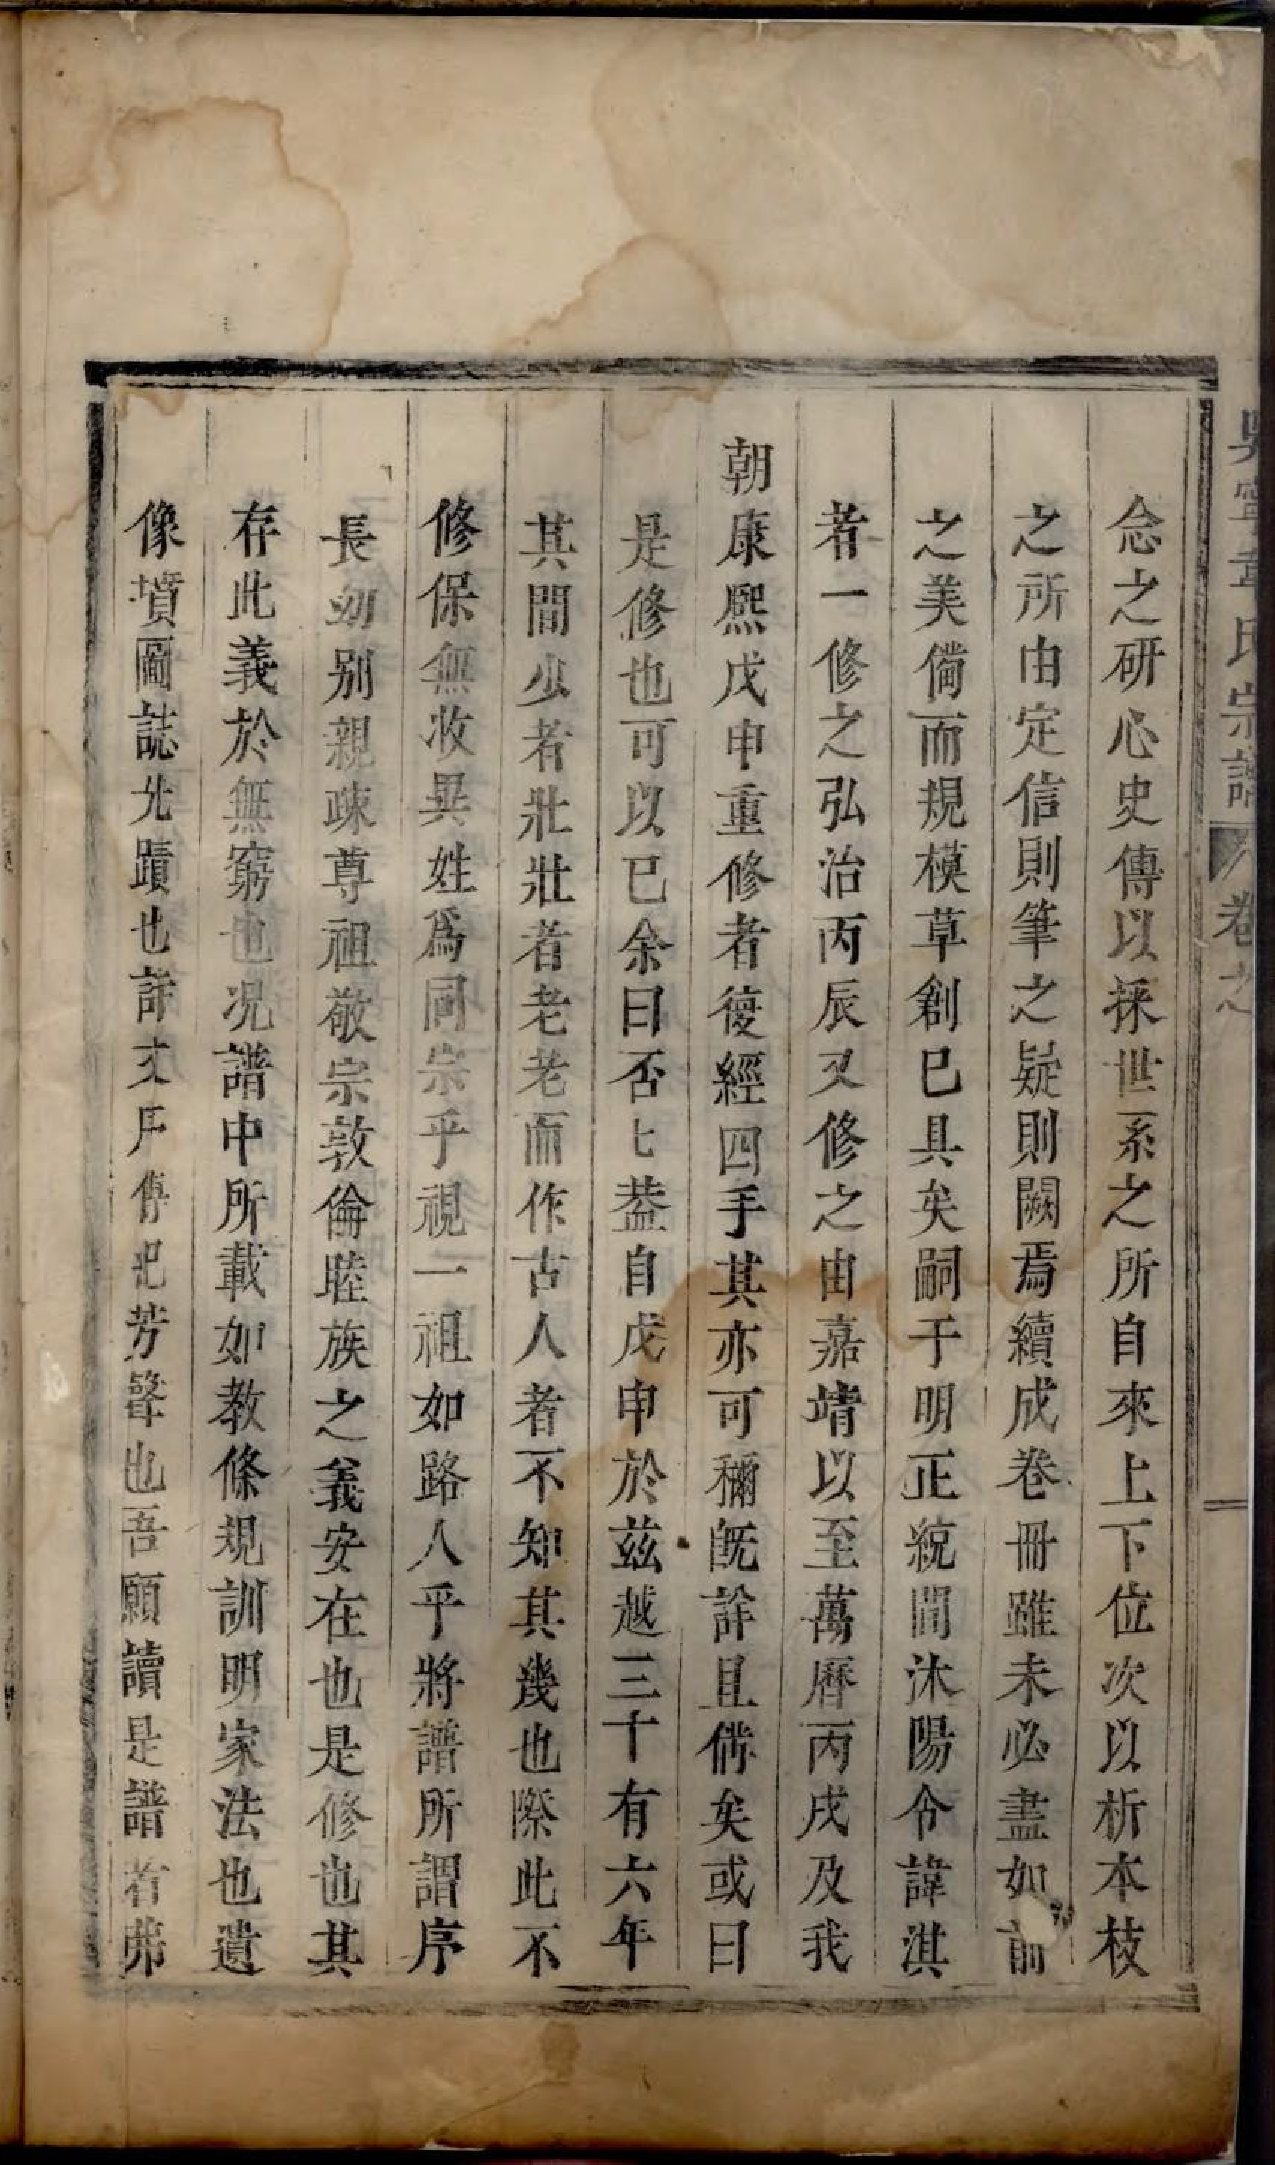 吳寧 氏宗譜 卷之
念之研心史傳以採世系之所自來上下位次以析本枝
之所由定信則筆之疑則闕焉續成卷冊雖未必盡如前
之美備而規模草創已具矣嗣于明正統間沐陽令諱淇
者一修之弘治丙辰又修之由嘉靖以至萬曆丙戌及我
朝康熙戊申重修者復經四手其亦可稱既詳且備矣或曰
是修也可以已余曰否七葢自戊申於茲越三十有六年
其間少者壯壯者老老而作古人者不知其幾也際此不
修保無收異姓爲同宗乎視一祖如路人乎將譜所謂序
長幼別親疎尊祖敬宗敦倫睦族之義安在也是修也其
存此義於無窮也况譜中所載如教條規訓明家法也遺
像墳圖誌先蹟也詩文 傳紀芳聲也吾願讀是譜者弗